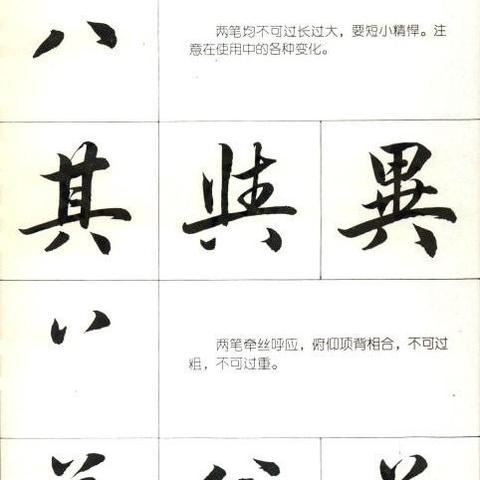 两笔均不可过长过大，要短小精悍。注
意在使用中的各种变化。
其 與 異
两笔牵丝呼应，俯仰项背相合，不可过
粗，不可过重。